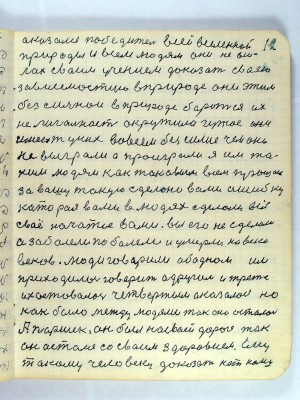 12
оказался победител всей вселенной
природы и всем людям они не
лак своим учением доказат
зависемостию в природе они этим
без силной в природе бароться их
не пугакает окрутило
имеет у них вовсем без силие чем они
не виграли а програли я им та
ким людям как таковым всем
за вашу такую сделоно вами ашибку
каторая вами в людях сделом всё
своё началие вами. вы его не сделом
а заболели поболели и умерли на веки
веков. люди говарили абодном им
приходилос говорит адругим и трете
их осталос четвертым оказалос но
как было между людями так оно осталос
А паршек. он был на своей дароге так
он астался со своим здоровием. Ему
такому человеку доказат